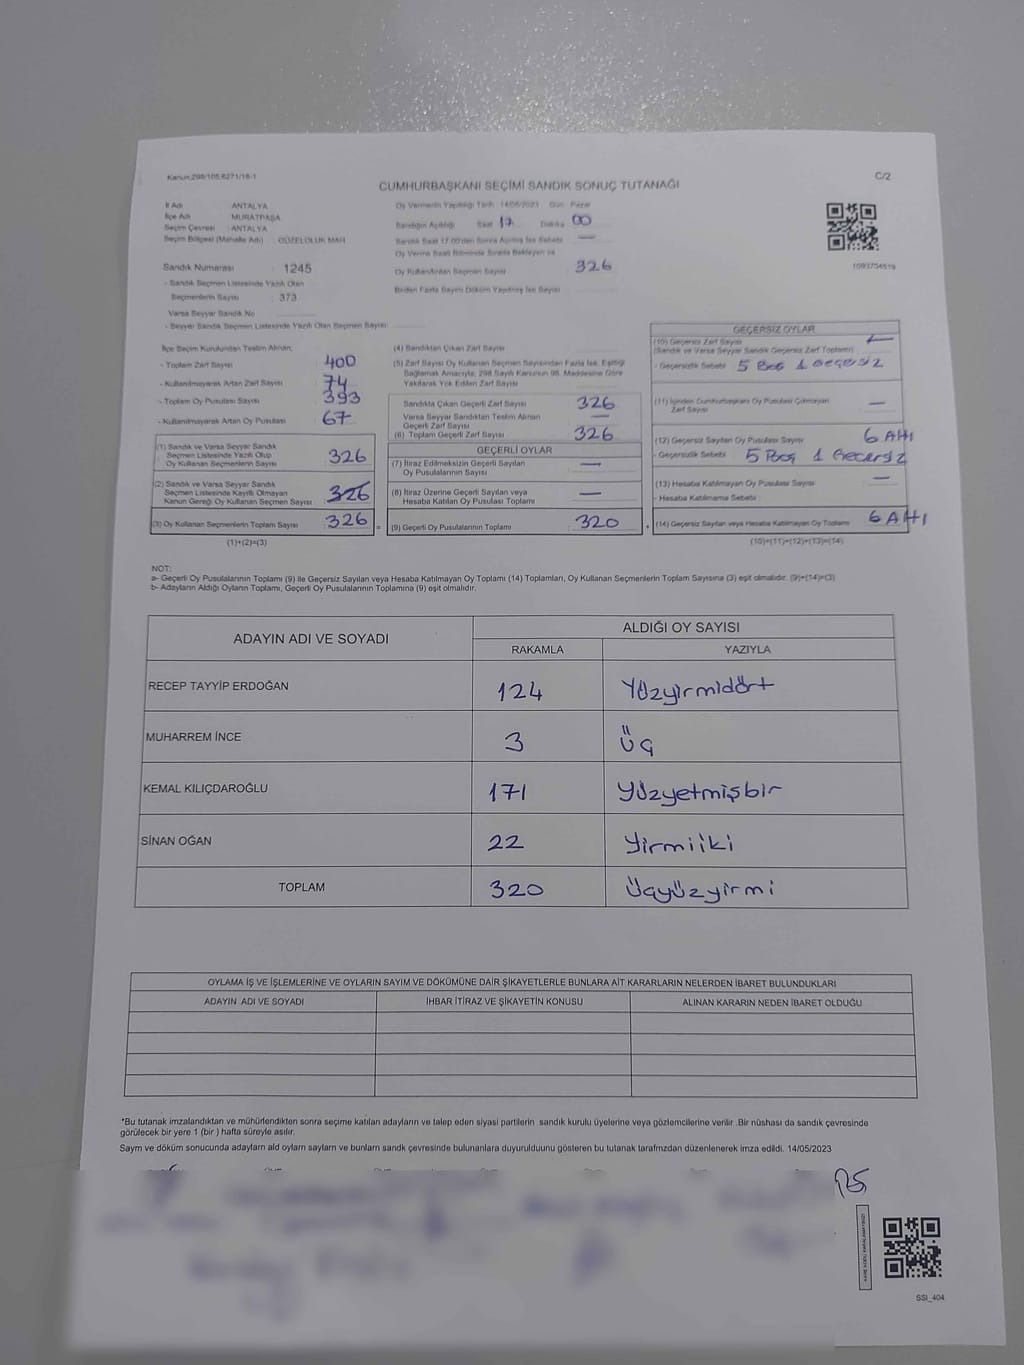 Kanun:298/105,6271/18-1
C/2
CUMHURBAŞKANI SEÇİMİ SANDIK SONUÇ TUTANAĞI
İl Adı : ANTALYA
İlçe Adı : MURATPAŞA
Seçim Çevresi : ANTALYA
Seçim Bölgesi (Mahalle Adı) : GÜZELOLUK MAH.
Sandık Numarası : 1245
- Sandık Seçmen Listesinde Yazılı Olan
Seçmenlerin Sayısı : 373
Varsa Seyyar Sandık No
- Seyyar Sandık Seçmen Listesinde Yazılı Olan Seçmen Sayısı
Oy Vermenin Yapıldığı Tarih: 14/05/2023 Gün: Pazar
Sandığın Açıldığı Saat 17 Dakika 00
Sandık Saat 17.00'den Sonra Açılmış İse Sebebi —
Oy Verme Saati Bitiminde Sırada Bekleyen ve
Oy Kullandırılan Seçmen Sayısı 326
Birden Fazla Sayım Döküm Yapılmış İse Sayısı
İlçe Seçim Kurulundan Teslim Alınan;
- Toplam Zarf Sayısı 400
- Kullanılmayarak Artan Zarf Sayısı 74
- Toplam Oy Pusulası Sayısı 393
- Kullanılmayarak Artan Oy Pusulası 67
(1) Sandık ve Varsa Seyyar Sandık
Seçmen Listesinde Yazılı Olup
Oy Kullanan Seçmenlerin Sayısı 326
(2) Sandık ve Varsa Seyyar Sandık
Seçmen Listesinde Kayıtlı Olmayan
Kanun Gereği Oy Kullanan Seçmen Sayısı 326
(3) Oy Kullanan Seçmenlerin Toplam Sayısı 326
(1)+(2)=(3)
(4) Sandıktan Çıkan Zarf Sayısı
(5) Zarf Sayısı Oy Kullanan Seçmen Sayısından Fazla İse, Eşitliği
Sağlamak Amacıyla, 298 Sayılı Kanunun 98. Maddesine Göre
Yakılarak Yok Edilen Zarf Sayısı
Sandıkta Çıkan Geçerli Zarf Sayısı 326
Varsa Seyyar Sandıktan Teslim Alınan
Geçerli Zarf Sayısı —
(6) Toplam Geçerli Zarf Sayısı 326
GEÇERLİ OYLAR
(7) İtiraz Edilmeksizin Geçerli Sayılan
Oy Pusulalarının Sayısı —
(8) İtiraz Üzerine Geçerli Sayılan veya
Hesaba Katılan Oy Pusulası Toplamı —
(9) Geçerli Oy Pusulalarının Toplamı 320
GEÇERSİZ OYLAR
(10) Geçersiz Zarf Sayısı
(Sandık ve Varsa Seyyar Sandık Geçersiz Zarf Toplamı)
- Geçersizlik Sebebi 5 Boş 1 Geçersiz
(11) İçinden Cumhurbaşkanı Oy Pusulası Çıkmayan
Zarf Sayısı —
(12) Geçersiz Sayılan Oy Pusulası Sayısı 6 Altı
- Geçersizlik Sebebi 5 Boş 1 Geçersiz
(13) Hesaba Katılmayan Oy Pusulası Sayısı —
- Hesaba Katılmama Sebebi
(14) Geçersiz Sayılan veya Hesaba Katılmayan Oy Toplamı 6 Altı
(10)+(11)+(12)+(13)=(14)
NOT:
a- Geçerli Oy Pusulalarının Toplamı (9) ile Geçersiz Sayılan veya Hesaba Katılmayan Oy Toplamı (14) Toplamları, Oy Kullanan Seçmenlerin Toplam Sayısına (3) eşit olmalıdır. (9)+(14)=(3)
b- Adayların Aldığı Oyların Toplamı, Geçerli Oy Pusulalarının Toplamına (9) eşit olmalıdır.
ADAYIN ADI VE SOYADI ALDIĞI OY SAYISI
RAKAMLA YAZIYLA
RECEP TAYYİP ERDOĞAN 124 Yüzyirmidört
MUHARREM İNCE 3 Üç
KEMAL KILIÇDAROĞLU 171 Yüzyetmişbir
SİNAN OĞAN 22 Yirmiiki
TOPLAM 320 Üçyüzyirmi
OYLAMA İŞ VE İŞLEMLERİNE VE OYLARIN SAYIM VE DÖKÜMÜNE DAİR ŞİKAYETLERLE BUNLARA AİT KARARLARIN NELERDEN İBARET BULUNDUKLARI
ADAYIN ADI VE SOYADI İHBAR İTİRAZ VE ŞİKAYETİN KONUSU ALINAN KARARIN NEDEN İBARET OLDUĞU
*Bu tutanak imzalandıktan ve mühürlendikten sonra seçime katılan adayların ve talep eden siyasi partilerin sandık kurulu üyelerine veya gözlemcilerine verilir .Bir nüshası da sandık çevresinde
görülecek bir yere 1 (bir ) hafta süreyle asılır.
Sayım ve döküm sonucunda adayların ald oyların sayların ve bunların sandk çevresinde bulunanlara duyurulduunu gösteren bu tutanak tarafmzdan düzenlenerek imza edildi. 14/05/2023
SSI_404